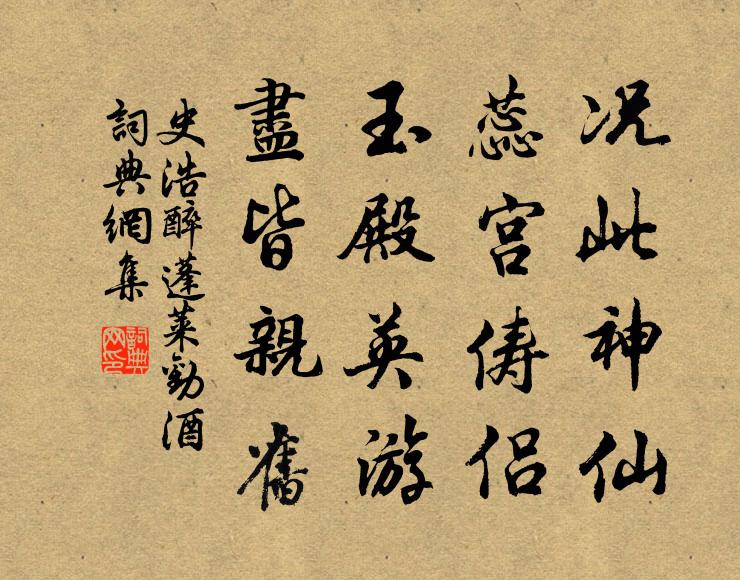 况此神仙
蕊宫俦侣
玉殿英游
盡皆親舊
史浩醉蓬萊勸酒
詞典網集
詞典
网印